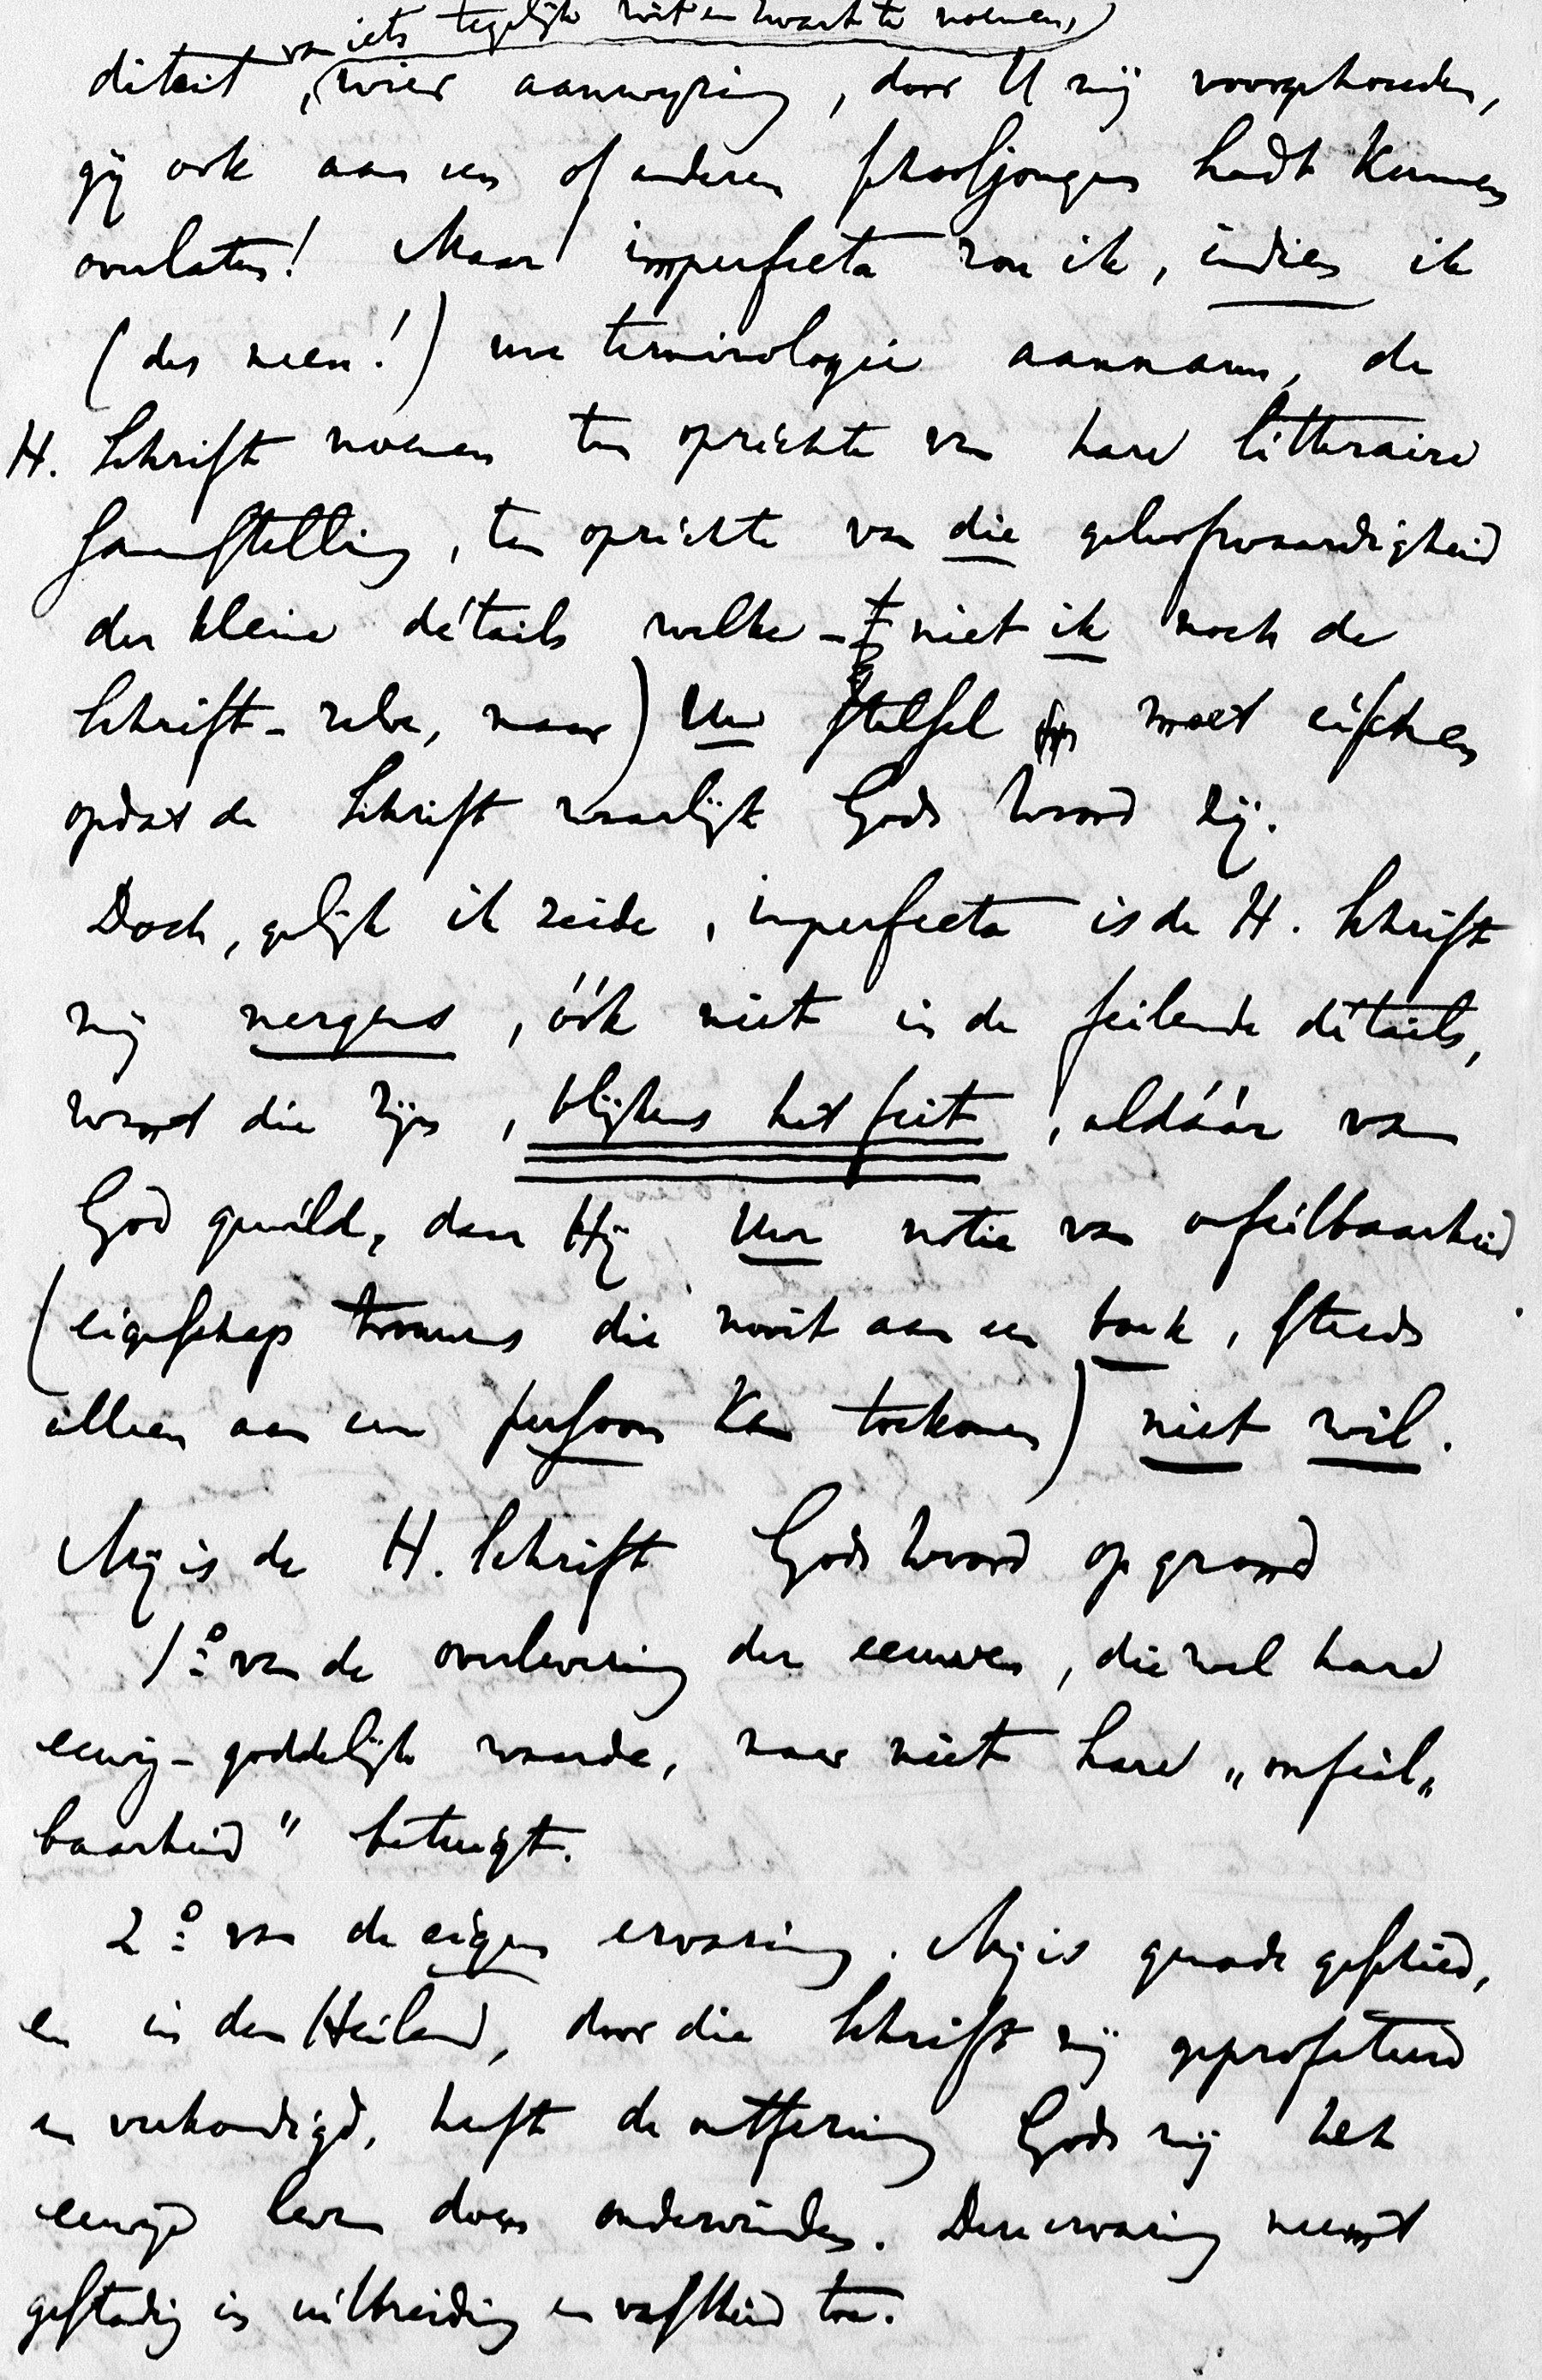 van iets tegelijk wit en zwart te noemen,)
diteit, (wier aanwyzing, door U mij voorgehouden,
gij ook aan een of anderen schooljongen hadt kunnen
overlaten! Maar imperfecta zou ik, indien ik
(des neen!) uwe terminologie aannam, de
H. Schrift noemen ten opzichte van hare litteraire
samenstelling, ten opzichte van die geloofwaardigheid
der kleine détails welke - niet ik noch de
Schrift - zelve, maar) Uw stelsel moet eischen
opdat de Schrift waarlijk Gods Woord zij.
Doch, gelijk ik zeide, imperfecta is de H. Schrift
mij nergens, óók niet in de feilende détails,
want die zijn, blijkens het feit, aldáár van
God gewild, daar Hij Uwe notie van onfeilbaarheid
(eigenschap trouwens die nooit aan een boek, steeds
alleen aan een persoon kan toekomen) niet wil.
Mij is de H. Schrift Gods Woord op grond
1º van de overlevering der eeuwen, die wel hare
eeuwig-goddelijke waarde, maar niet hare „onfeil„
baarheid" betuigt.
2º van de eigen ervaring. Mij is genade geschied,
en in den Heiland, door die Schrift mij geprofeteerd
en verkondigd, heeft de ontferming Gods mij het
eeuwige leven doen ondervinden. Deze ervaring neemt
gestadig in uitbreiding en vastheid toe.